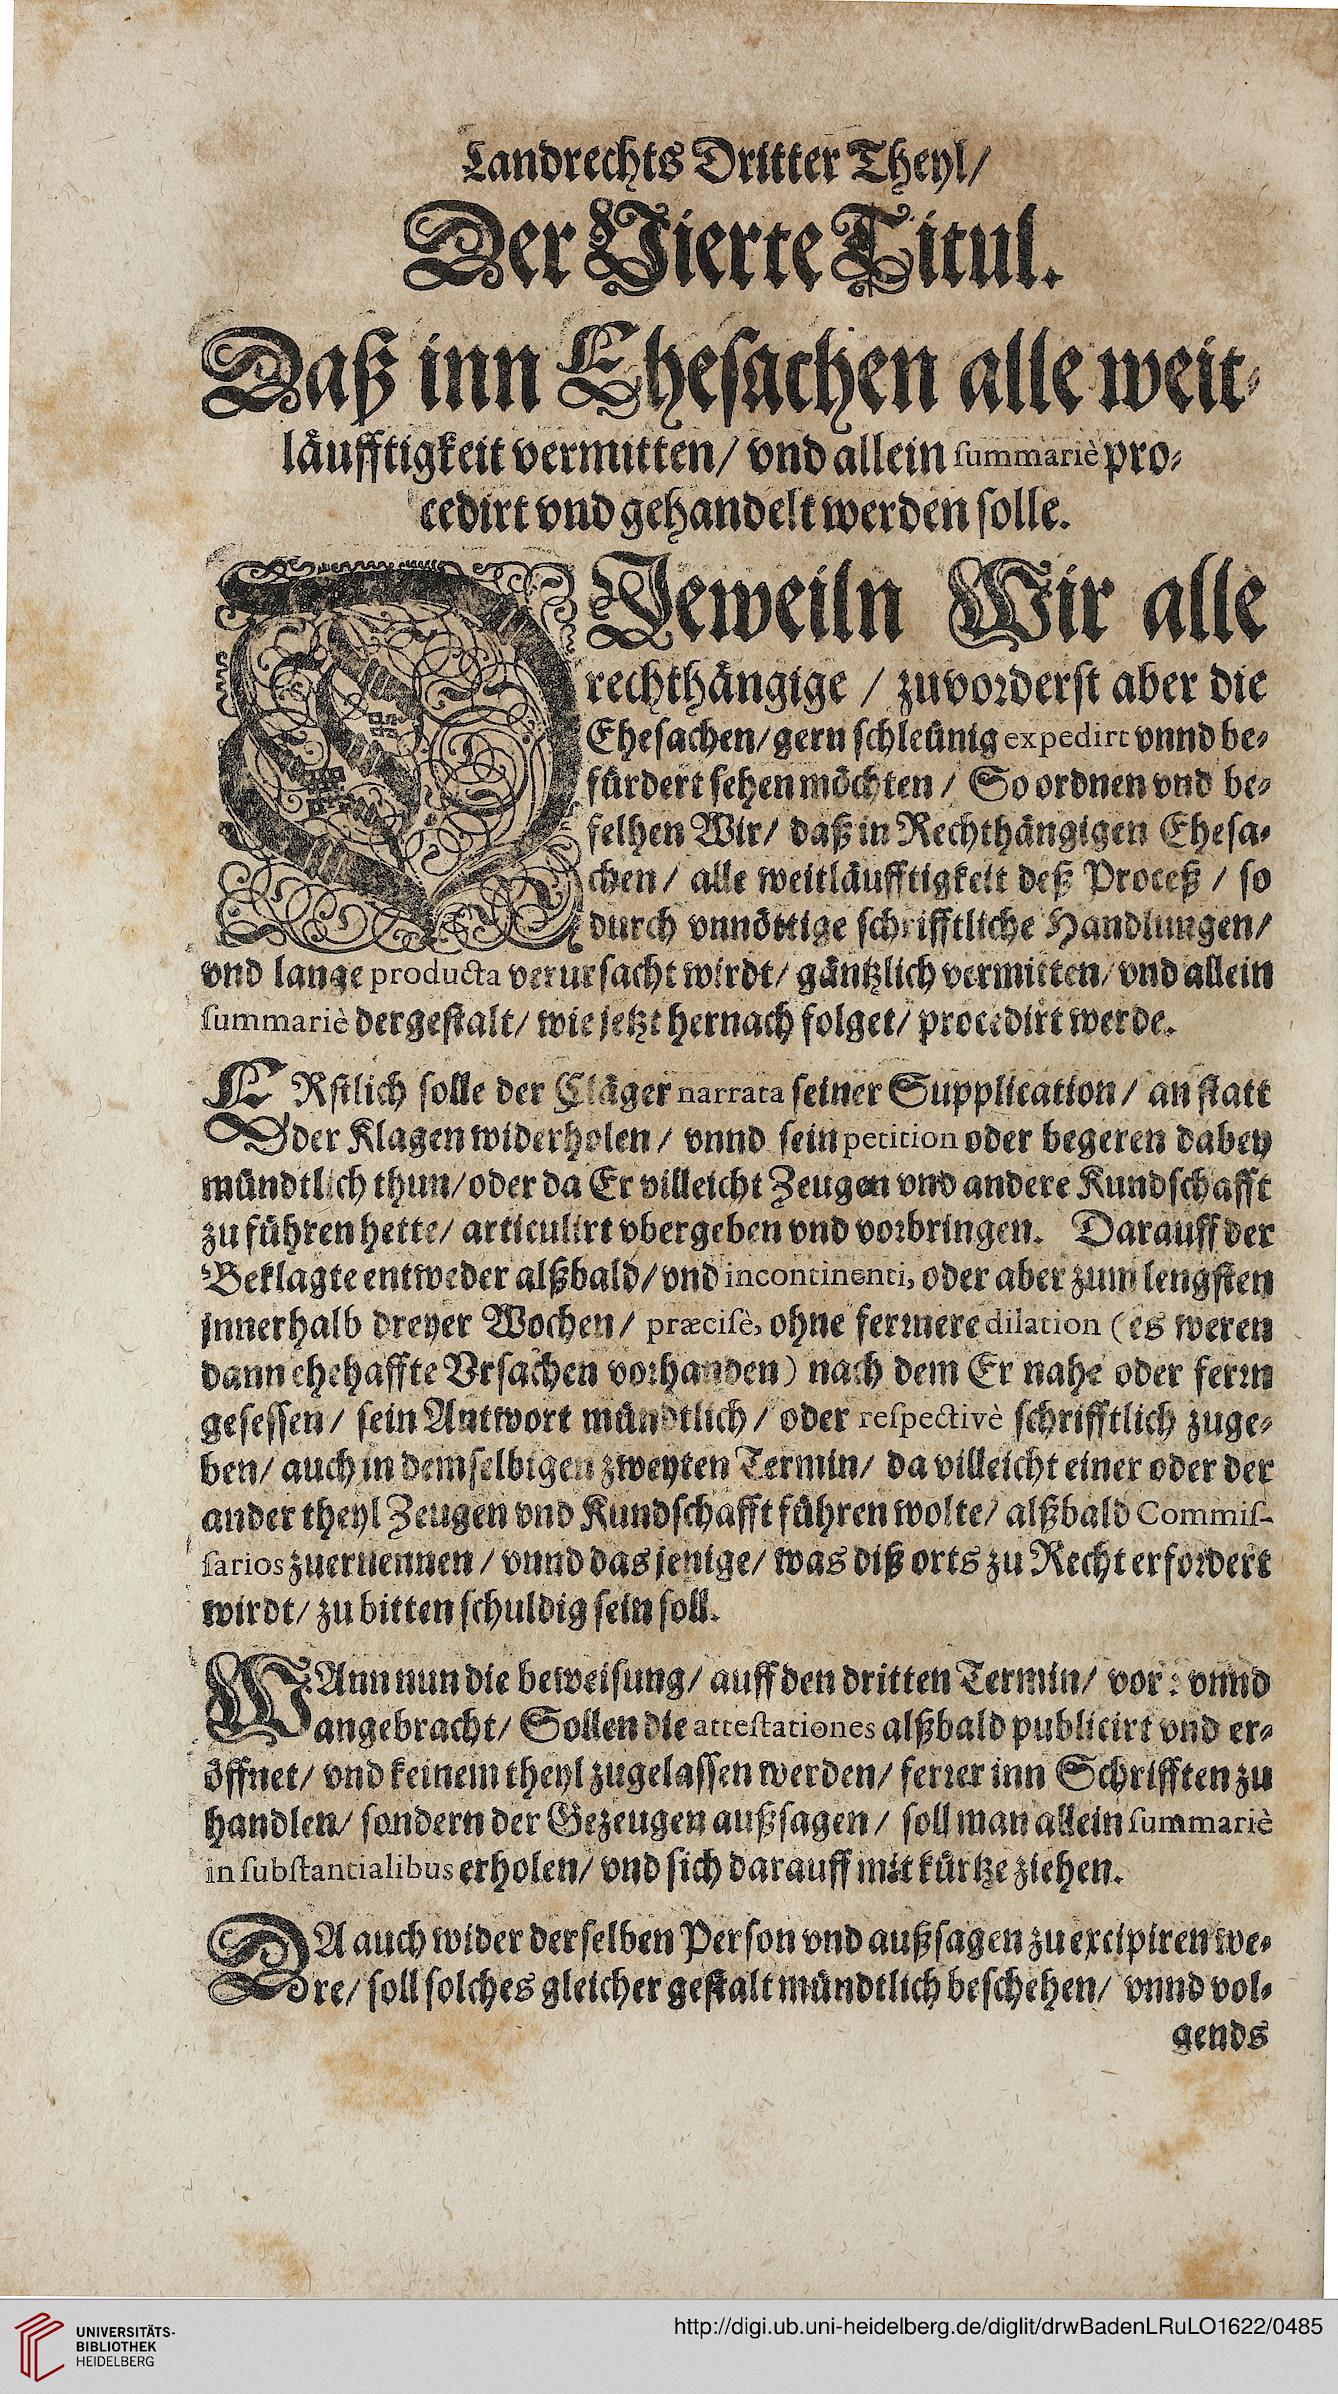 Landrechts Dritter Theyl/
Der Vierte Titul.
Daß inn Ehesachen alle weit-
läufftigkeit vermitten/ vnd allein summariè pro-
cedirt vnd gehandelt werden solle.
DJeweiln Wir alle
rechthängige / zuvorderst aber die
Ehesachen/ gern schleünig expedirt vnnd be-
fürdert sehen möchten / So ordnen vnd be-
felhen Wir/ daß in Rechthängigen Ehesa-
chen / alle weitläufftigkeit deß Proceß / so
durch vnnöttige schrifftliche Handlungen/
vnd lange producta verursacht wirdt/ gäntzlich vermitten/ vnd allein
summariè dergestalt/ wie jetzt hernach folget/ procedirt werde.
ERstlich solle der Cläger narrata seiner Supplication / an statt
der Klagen widerholen / vnnd sein petition oder begeren dabey
mündtlich thun/ oder da Er villeicht Zeugen vnd andere Kundschafft
zu führen hette/ articulirt vbergeben vnd vorbringen. Darauff der
Beklagte entweder alßbald/ vnd incontinenti, oder aber zum lengsten
jnnerhalb dreyer Wochen / præcisè, ohne fermere dilation (es weren
dann ehehaffte Vrsachen vorhanden) nach dem Er nahe oder ferrn
gesessen / sein Antwort mündtlich / oder respectivè schrifftlich zuge-
ben/ auch in demselbigen zweyten Termin/ da villeicht einer oder der
ander theyl Zeugen vnd Kundschafft führen wolte/ alßbald Commis-
sarios zuernennen / vnnd das jenige/ was diß orts zu Recht erfordert
wirdt/ zu bitten schuldig sein soll.
WAnn nun die beweisung/ auff den dritten Termin/ vor: vnnd
angebracht/ Sollen die attestationes alßbald publicirt vnd er-
öffnet/ vnd keinem theyl zugelassen werden/ ferrer inn Schrifften zu
handlen/ sondern der Gezeugen außsagen / soll man allein summariè
in substantialibus erholen/ vnd sich darauff mit kürtze ziehen.
DA auch wider derselben Person vnd außsagen zu excipiren we-
re/ soll solches gleicher gestalt mündtlich beschehen/ vnnd vol-
gends
UNIVERSITÄTS-
BIBLIOTHEK
HEIDELBERG
http://digi.ub.uni-heidelberg.de/diglit/drwBadenLRuLO1622/0485